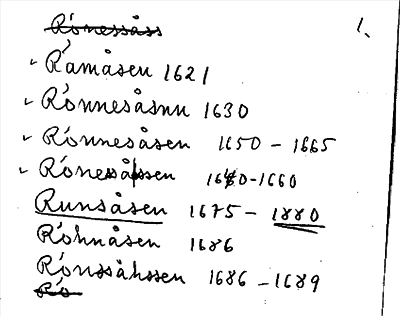 Rónessåss 1.
Rámåsen 1621
Rónnesåsnn 1630
Rónnesåsen 1650 - 1665
Rónessåssen 1640-1660
Runsåsen 1675 - 1880
Róhnåsen 1686
Rónssåhssen 1686 - 1689
Ró